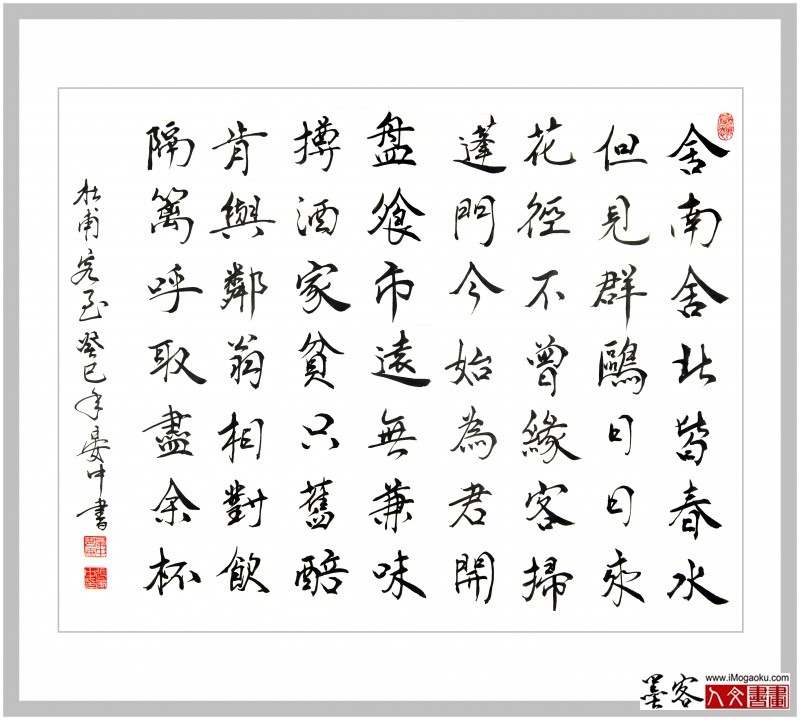 舍南舍北皆春水
但見群鷗日日來
花徑不曾緣客掃
蓬門今始為君開
盤飱市遠無兼味
樽酒家貧只舊醅
肯與鄰翁相對飲
隔籬呼取盡余杯
杜甫客至癸巳年晏中書
墨客
www.iMogaoku.com
人文書畫